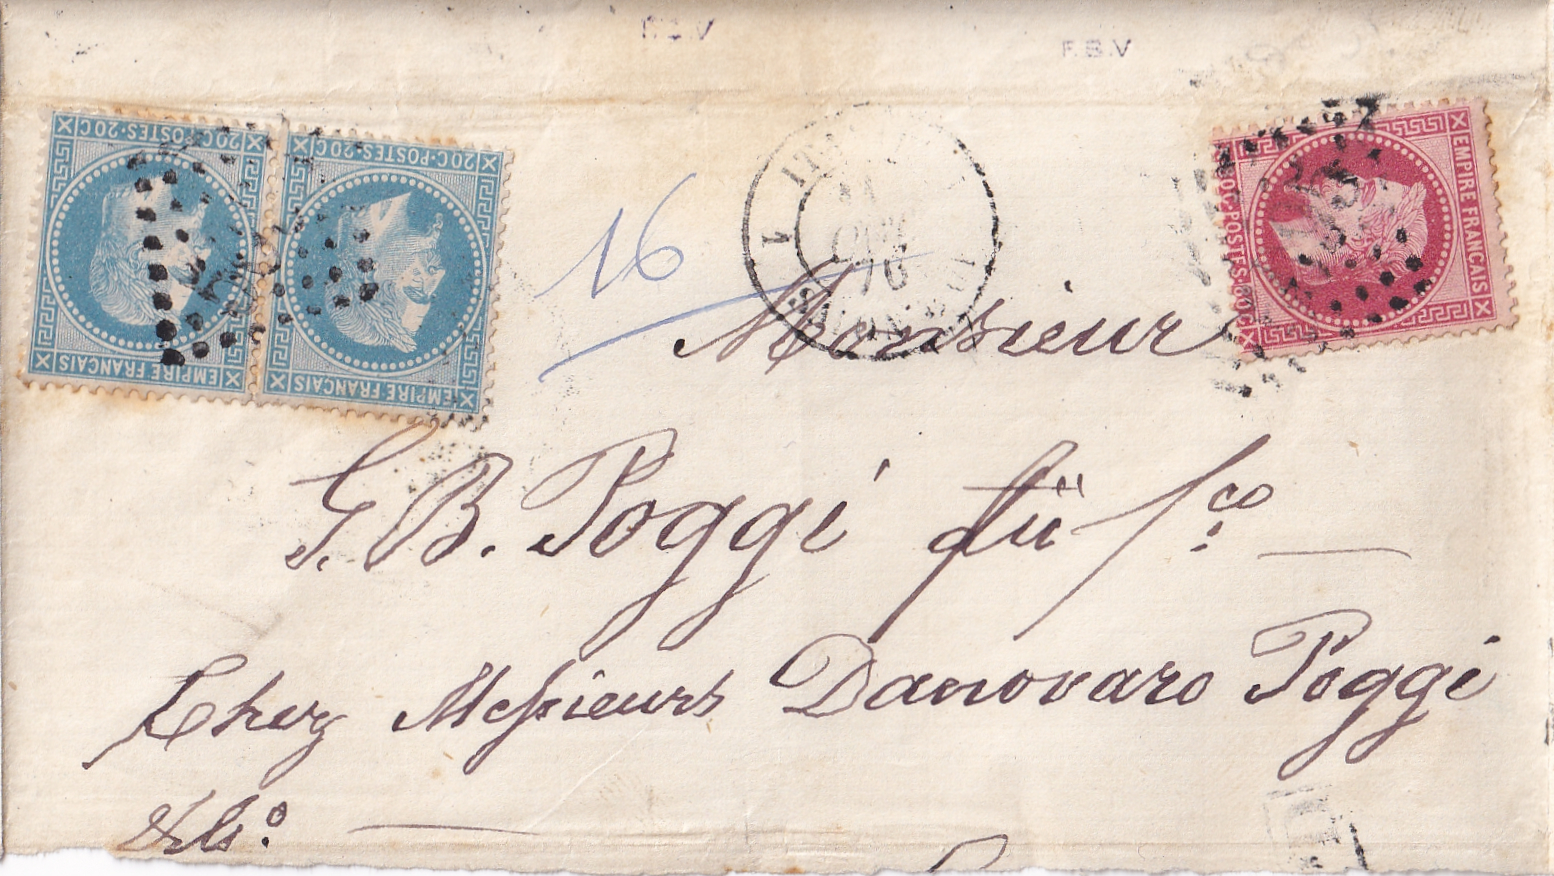 F.B.V
20C·POSTES·20C
EMPIRE FRANÇAIS
20C·POSTES·20C
EMPIRE FRANÇAIS
EMPIRE FRANÇAIS
80C·POSTES·80C
16
70
Monsieur
G. B. Poggi fü fco
Chez Messieurs Danovaro Poggi